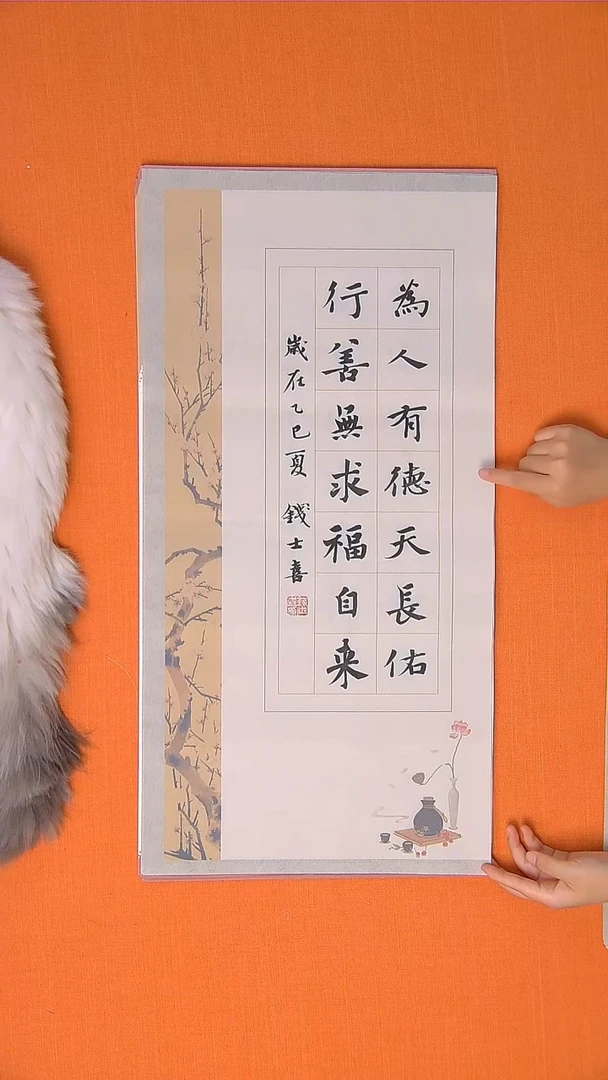 為人有德天長佑
行善無求福自来
歲在乙巳夏 錢士喜